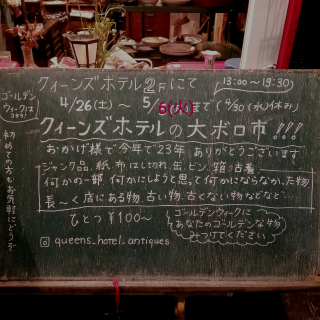 ゴールデン
ウィークは
コチラ!
クィーンズホテル2Fにて
13:00〜19:30
4/26(土)〜 5/6(火)まで (4/30(水)休み)
クィーンズホテルの大ボロ市!!!
おかげ様で今年で23年 ありがとうございます
ジャンク品、紙、布はし切れ、缶、ビン、箱、古着
何かの一部 何かにしようと思って何かにならなかった物
長〜く店にある物、古い物、古くない物などなど
ひとつ ¥100〜
ゴールデンウィークに
あなたのゴールデンな物
みつけてください
queens_hotel_antiques
初めての方もお気軽にどうぞ